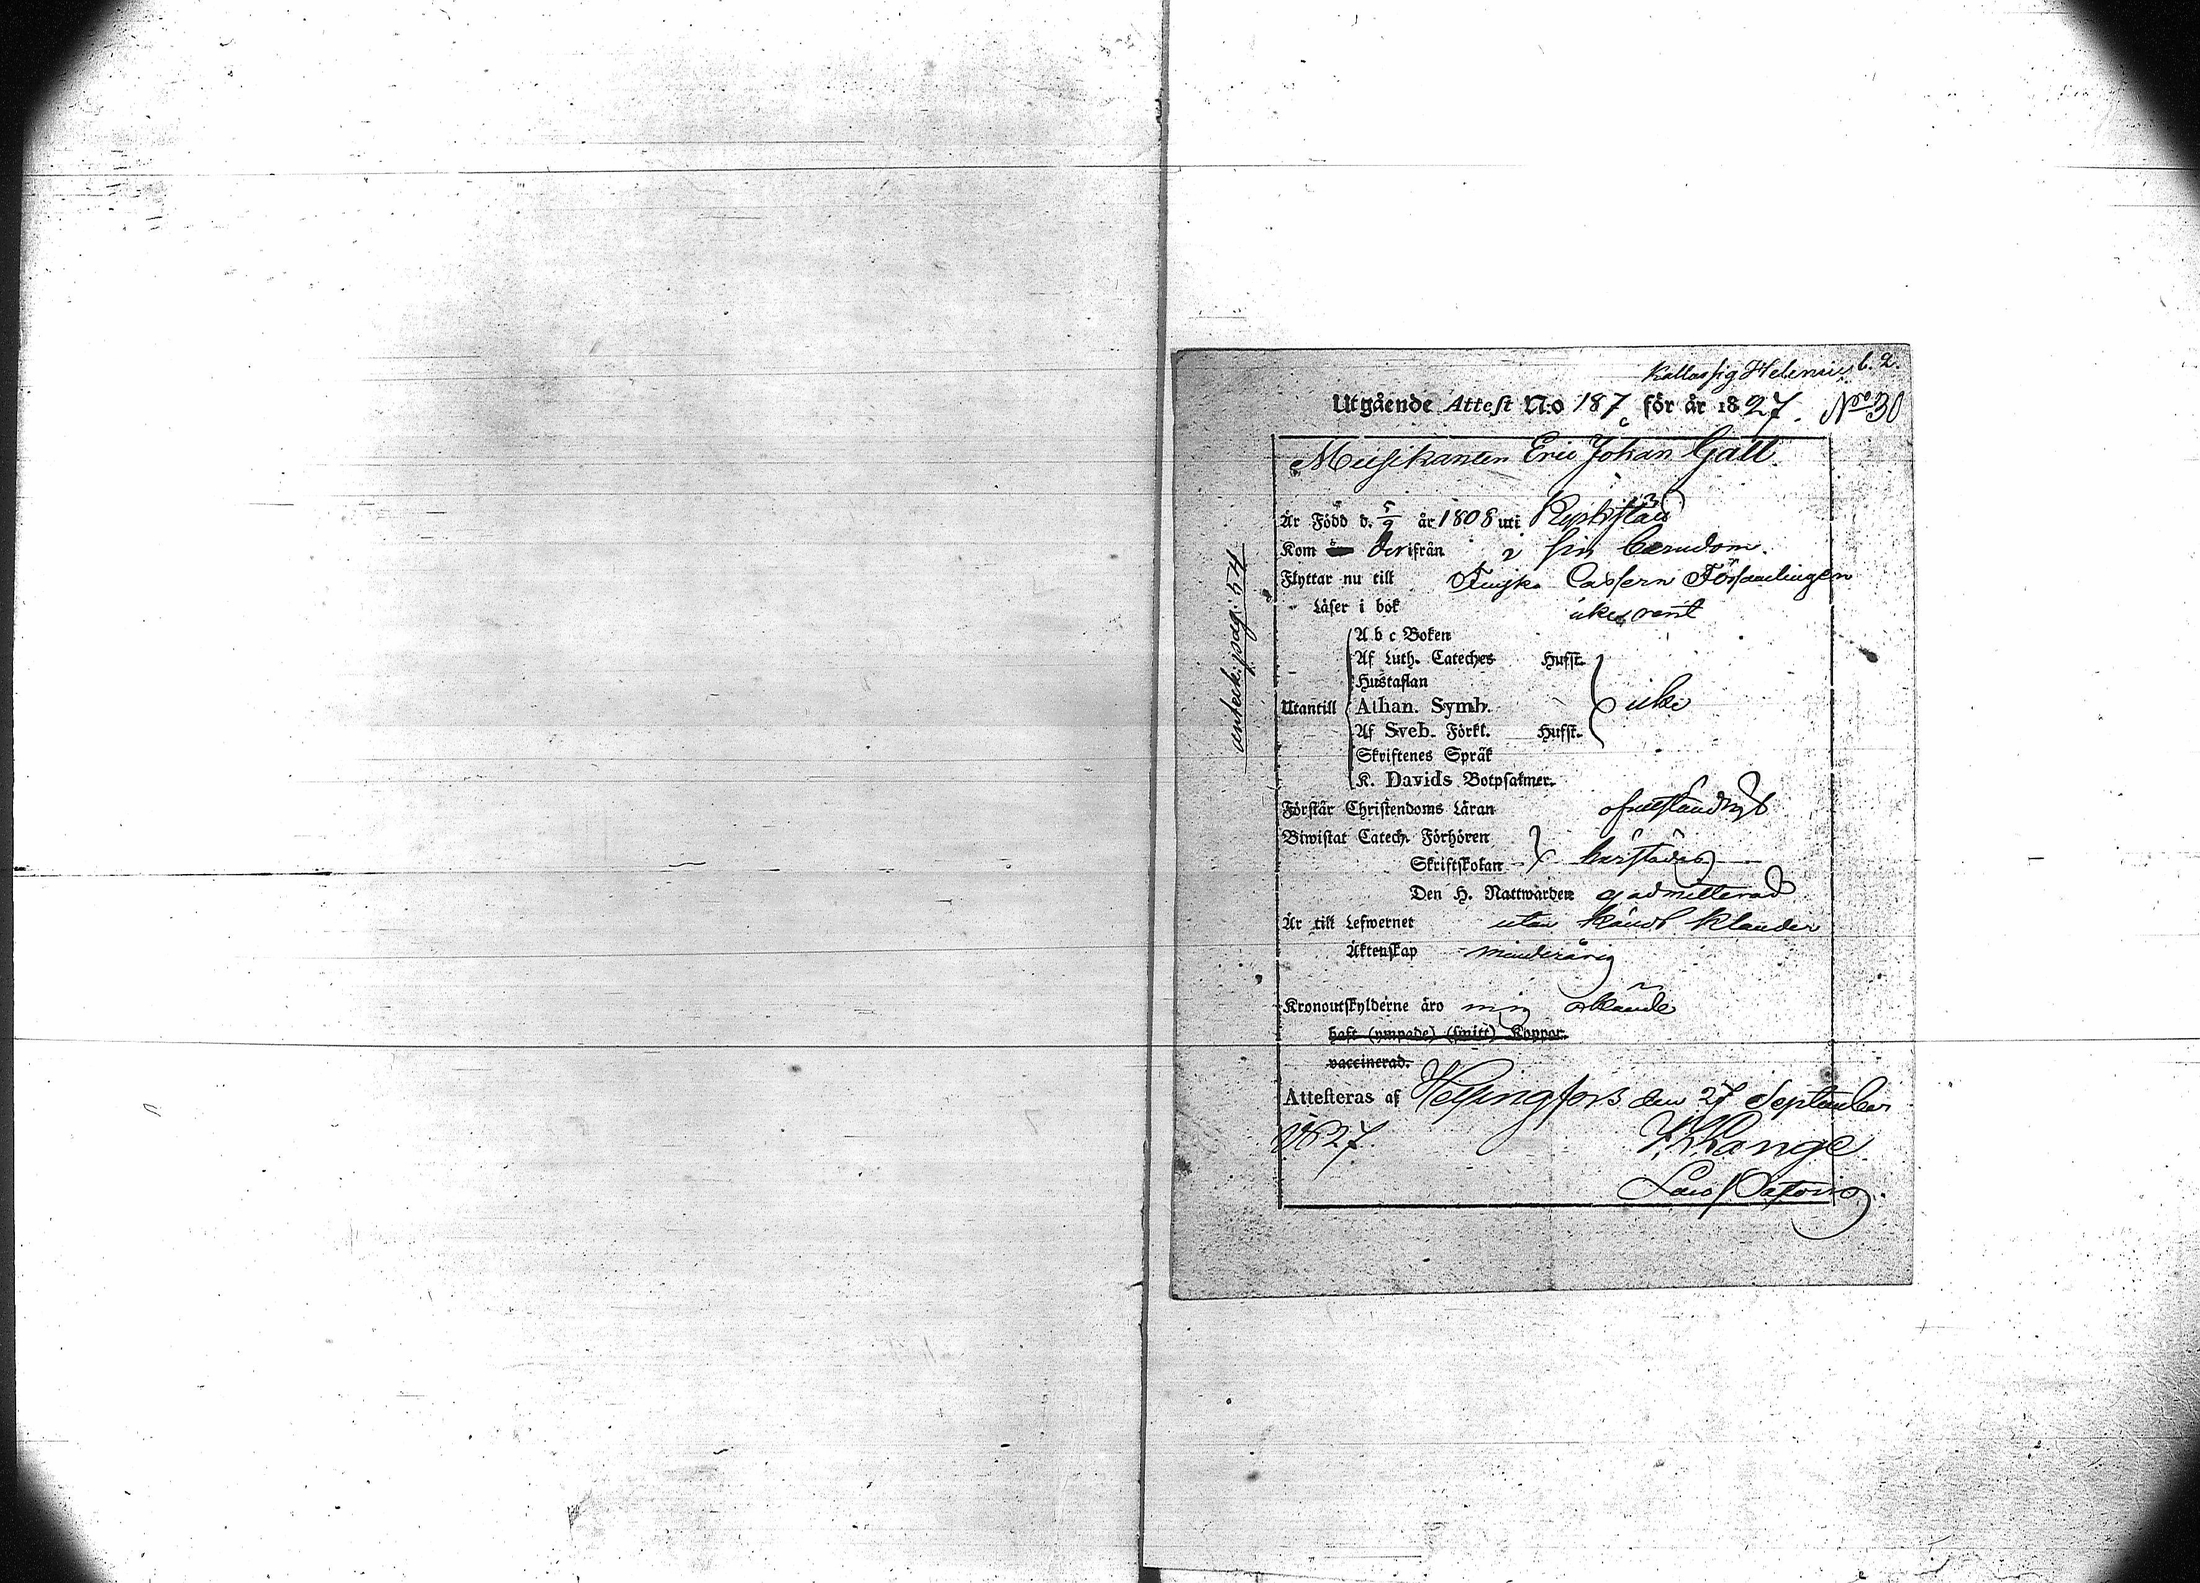 kallas sig Helenius b. 2.
Utgående Attest N:o 187 för år 1827. No 30
Musikanten Eric Johan Gåll
Är Född d. 5/9 år 1808 uti
Kom derifrån i sin barndom.
Flyttar nu till Finska Casern Församlingen
Läser i bok icke rent
A b c Boken
Af Luth. Cateches Hufst.
Hustaflan
Utantill Athan. Symb. icke
Af Sveb. Förkl. Hufst.
Skriftenes Språk
K. Davids Botpsalmer.
Förstår Christendoms Läran ofullständigt
Biwistat Catech. Förhören
Skriftskolan härstädes
Den H. Nattwarden ej admitterad
Är till Lefwernet utan kändt klander
Äktenskap minderårig
Kronoutskylderne äro mig okände
haft (ympade) (smitt) Koppor.
vaccinerad.
Attesteras af Helsingfors den 27 September
1827. Lange
Past
anteckn. pag. 54